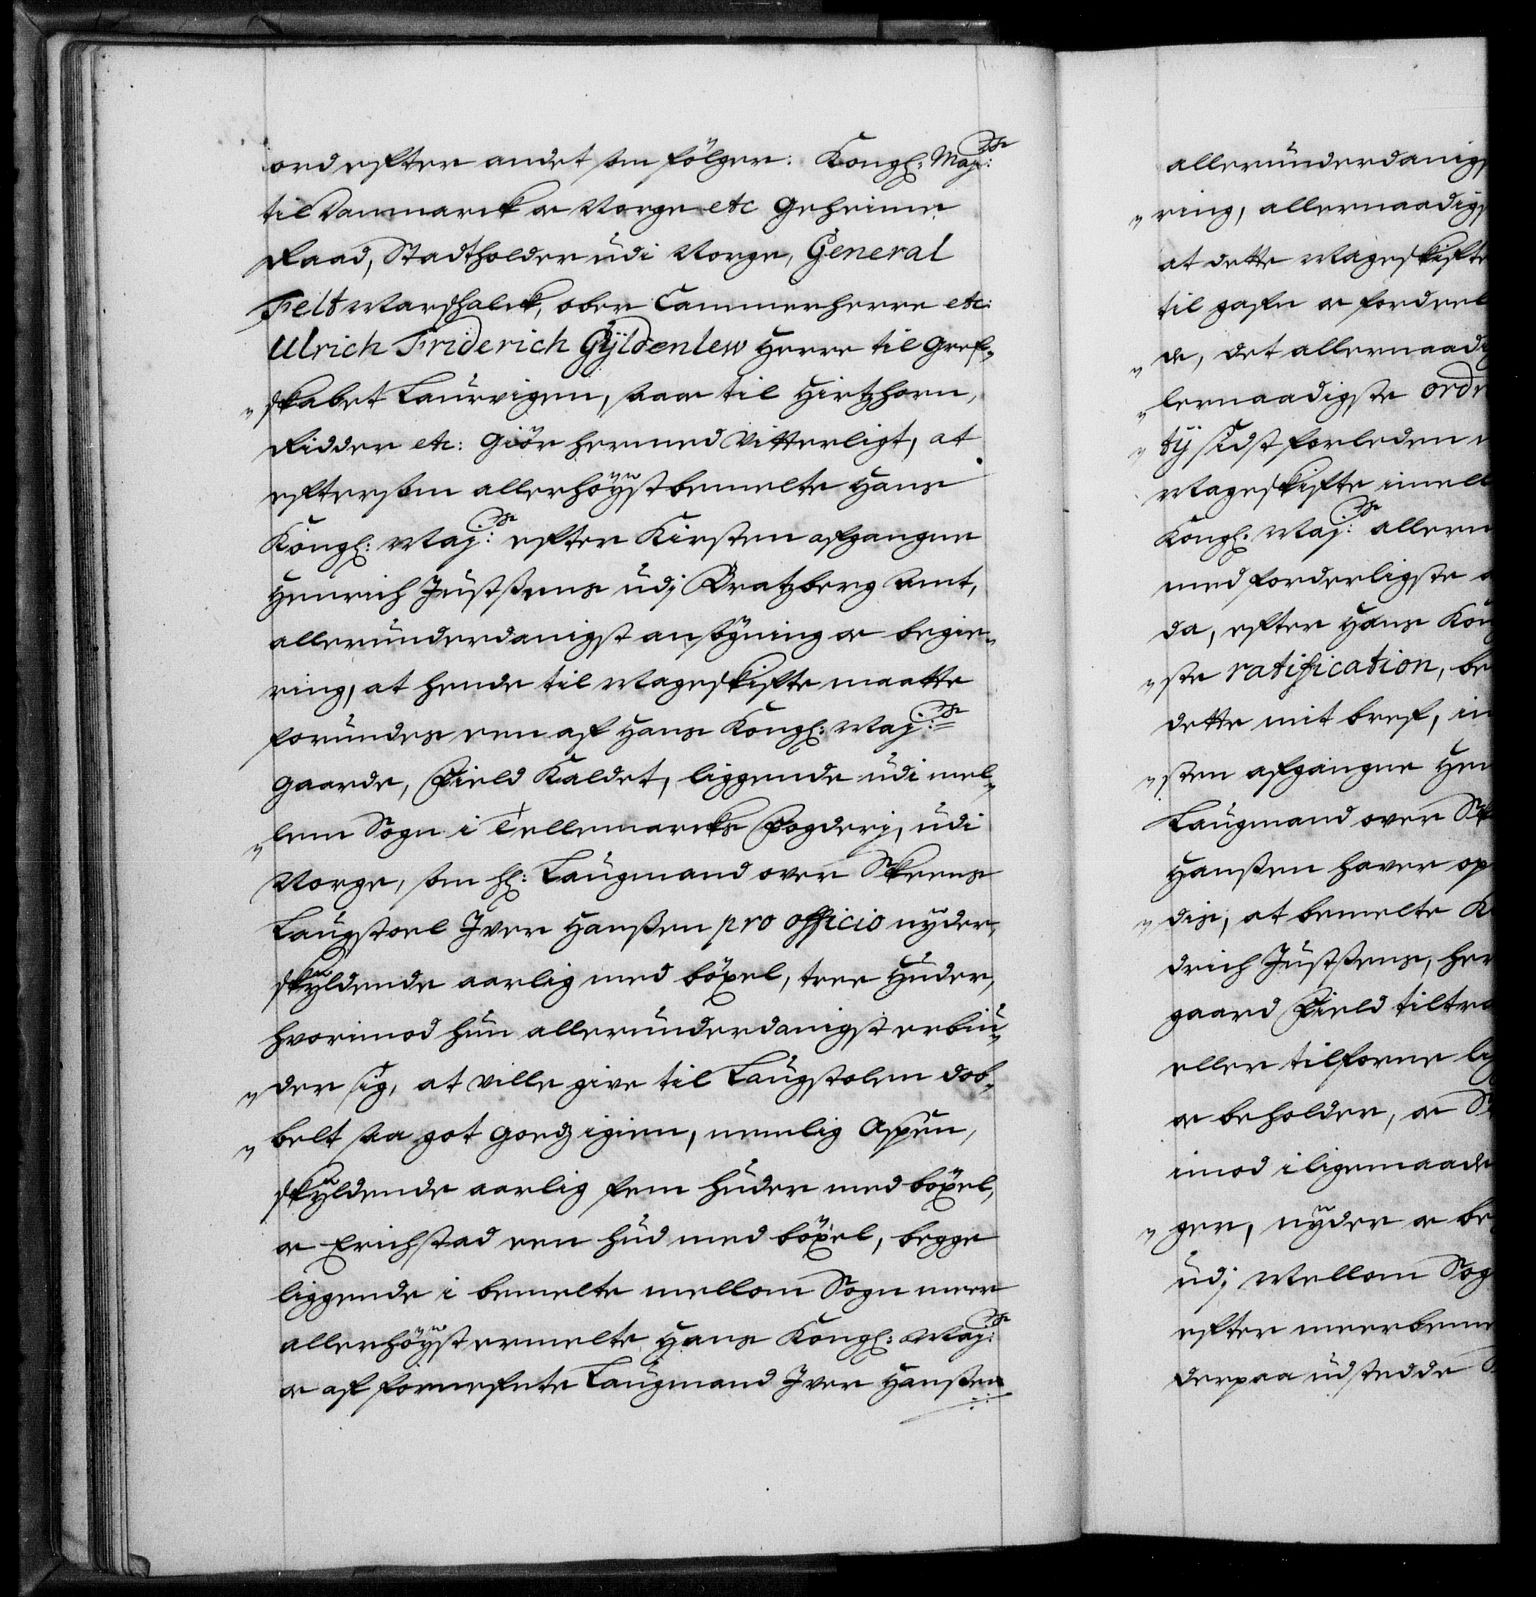 ord efter andet som fölger: Kongl: Maj:ts
til Danmarck oc Norge etc Geheime
Raad, Stadtholder udi Norge, General
Felt Marshalck, ober Cammerherre etc:
Ulrich Friderich Gÿldenlew Herre til Gref-
skabet Laurvigen, saa oc til Hirtzhorn,
Ridder etc: Giör hermed Vitterligt, at
eftersom allerhöÿstbemelte Hans
Kongl: Maj:ts efter Kirsten afgangne
Henrich Justsens udj Bratzberg Amt,
allerunderdanigst ansögning oc begie-
ring, at hende til Mageskifte maatte
forundes een af Hans Kongl: Maj:ts
gaarde, Field Kaldet, liggende udi Mel-
lem Sogn i Tellemarcks Fogderj, udi
Norge, som hl: Laugmand over Skeens
Laugstoel Iver Hanssen pro officio nÿder,
skÿldende aarlig med böxel, tree Huder,
hvorimod hun allerunderdanigst erbiu-
der sig, at ville give til Laugstolen dob-
belt saa got Goedz igien, nemlig Aspun,
skÿldende aarlig fem huder med böxel,
oc Erichstad een hud med böxel, begge
liggende i bemelte Mellom Sogn meer
allerhöÿstermelte Hans Kongl: Maj:ts
oc af fornefnte Laugmand Iver Hanssen
allerunderdanigs
ring, allernaadigs
at dette Mageskifte
til gafn oc fordeel
de, det allernaadig
lernaadigste ordr
tÿ sidst forleden
Mageskifte imell
Kongl: Maj:ts allern
med forderligste
da, efter Hans Kon
ste ratification, be
dette mit bref, in
sten afgangne Hen
Laugmand over Sk
Hanssen haver op
dis, at bemelte K
drich Justsens, her
gaard Field tiltr
eller tilforne lig
oc beholder, oc
imod i ligemaade
ger, nÿder oc be
udj Mellom Sog
efter meerbeme
derpaa udstedde